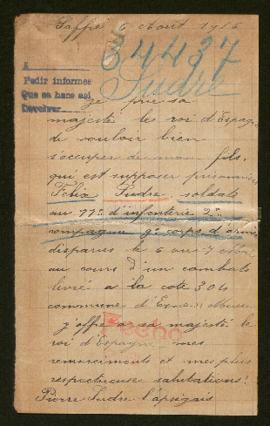 6 Août 1916
64437
A
Pedir informes
Que se hace así
Devolver
Sudre
Je prie sa
majesté le roi d'Espagne
de vouloir bien
s'occuper de mon fils
qui est supposer prisonnier
Félix Sudre soldat
au d'infanterie
compagnie 9e corps d'armé
disparus le 5 mai
au cours d'un combat
livré a la cote 304
commune d'Esnes Meuse
j'offre a sa majesté le
roi d'Espagne mes
remerciments et mes plus
respectueuse salutations
Pierre Sudre